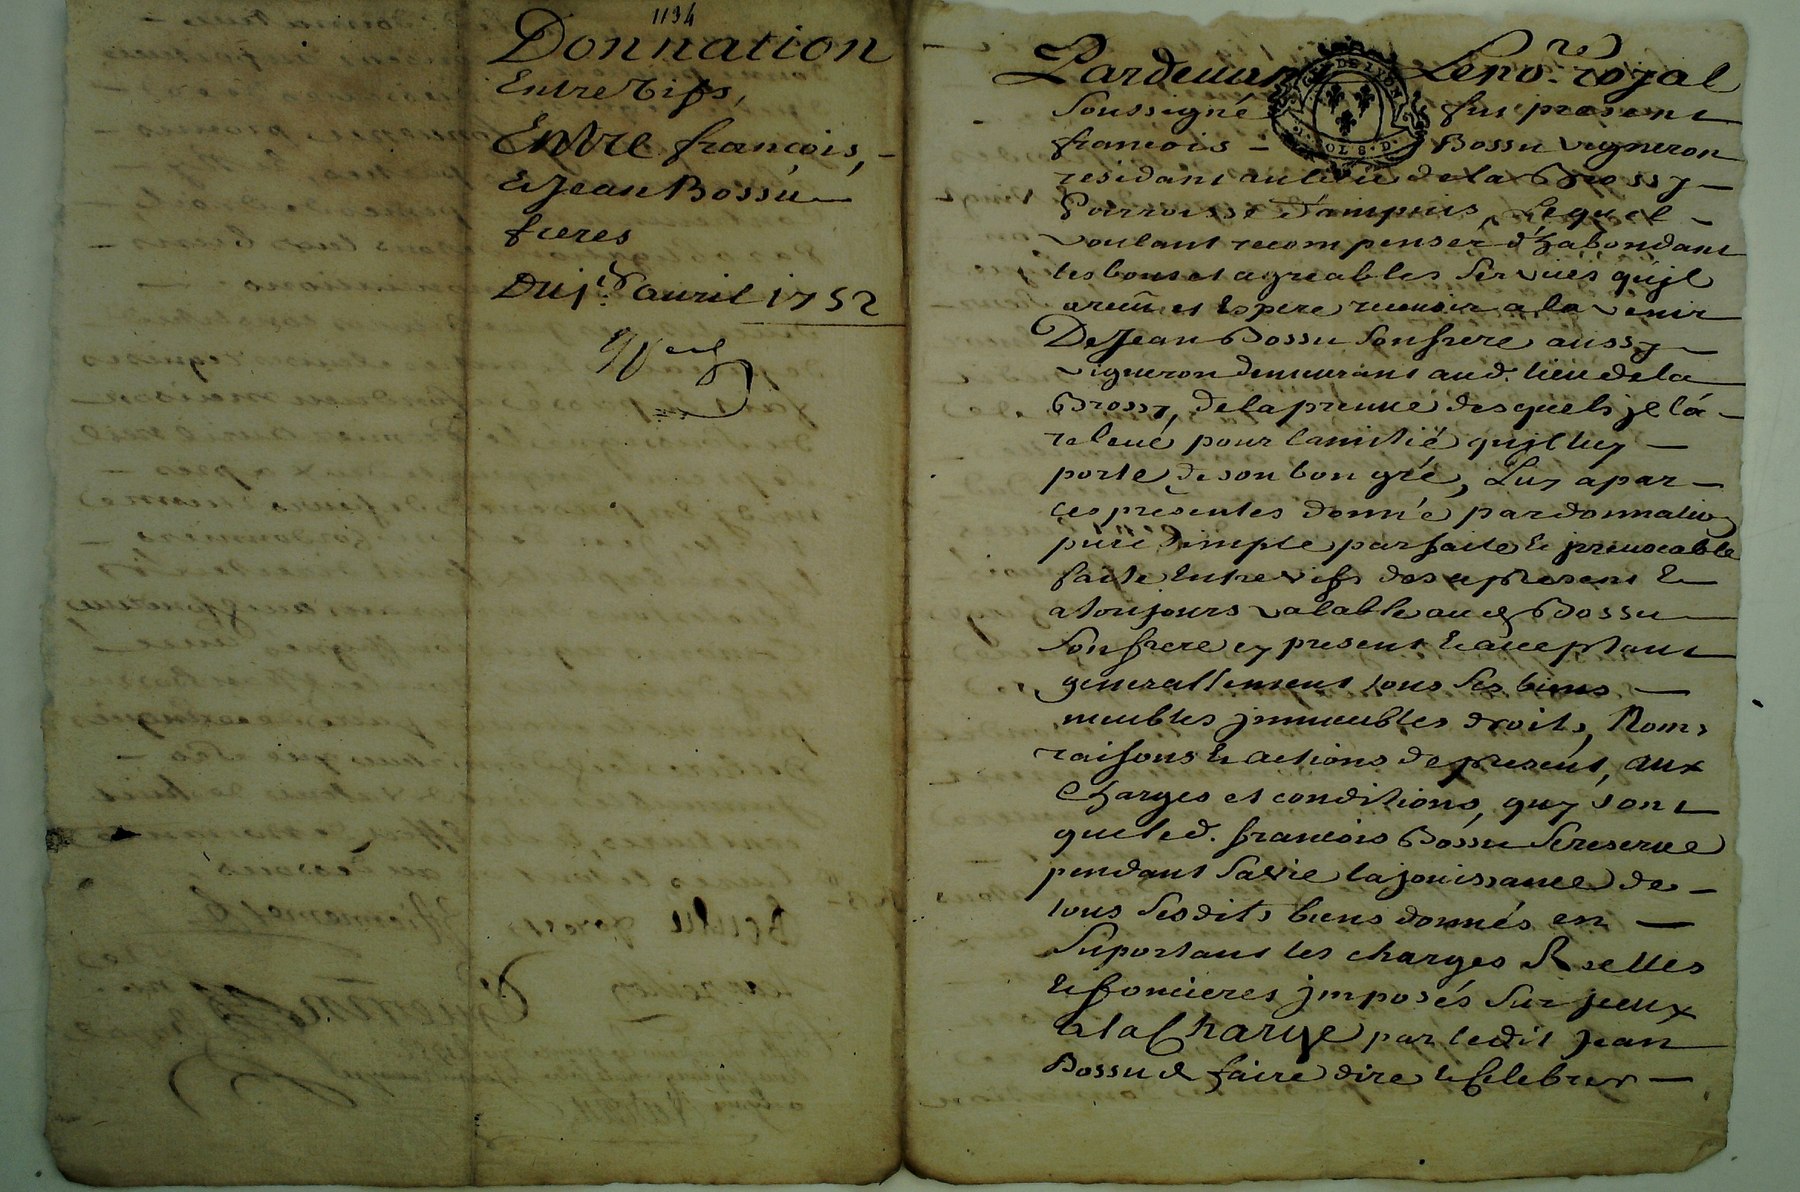 1194
Donnation
Entre vifs,
Entre françois,
& Jean Bossu
freres
Du 1er avril 1752
Pardevant Le no.re royal
soussigné fut present
francois Bossu vigneron
residant au lieu de la Brossy
Parroisse d'ampuis, Lequel
voulant recompenser d'habondant
les bons et agreables services qu'jl
a reçu et Espere recevoir a la venir
De Jean Bossu son frere aussy
vigneron demeurant aud. lieu de la
Brossy, de la preuve desquels jl la
relevé pour lamitié qu'jl luy
porte de son bon gré, Luy a par
ces presentes donné par donnation
pure simple parfaite & jrrevocable
faite Entre vifs des a present &
a toujours valable aud Bossu
son frere cy present & acceptant
generallement tous ses biens
meubles jmmeubles droits, Noms
raisons & actions de present, aux
Charges et conditions, quy sont
que led. francois Bossu se reserve
pendant sa vie la jouissance de
tous sesdits biens donnés en
suportant les charges Reelles
& foncieres jmposés sur jceux
& la Charge par ledit Jean
Bossu de faire dire & Celebrer